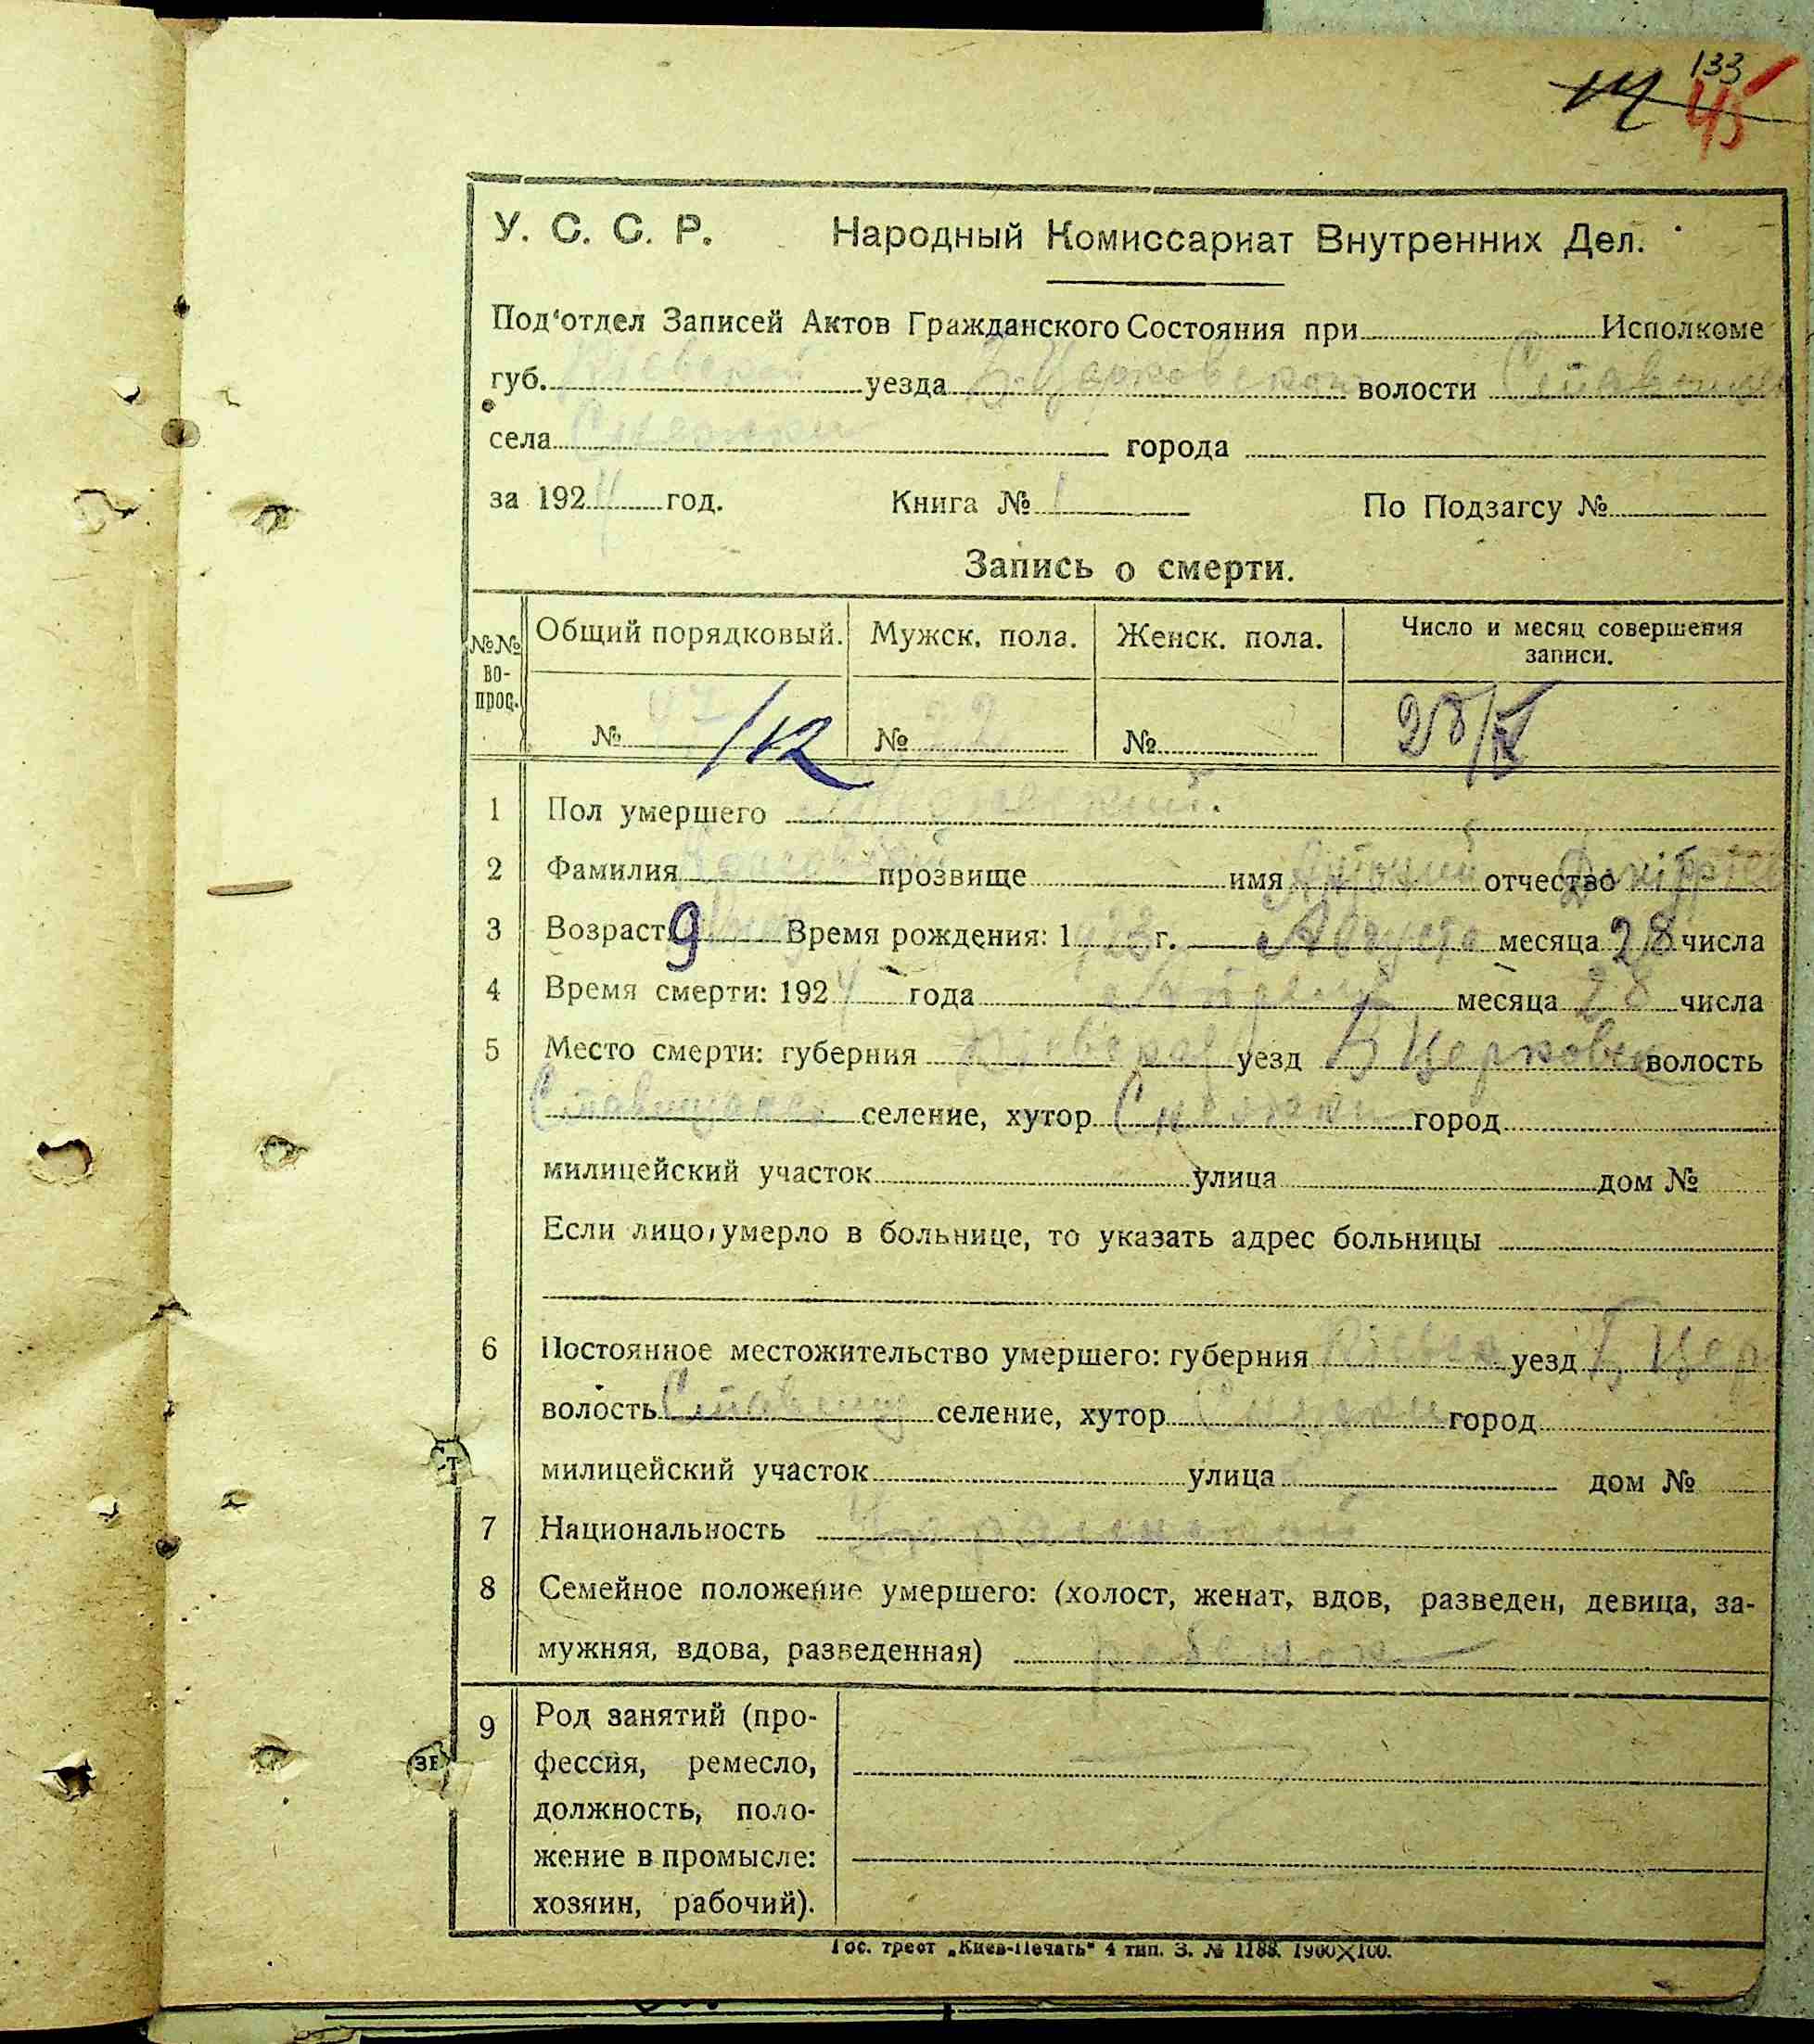 133
45
У. С. С. Р. Народный Комиссариат Внутренних Дел.
Под'отдел Записей Актов Гражданского Состояния при Исполкоме
губ. Кіевской уезда Б-Церковской волости Ставищан
села города
за 1924 год. Книга № 1 По Подзагсу №
Запись о смерти.
№№ во-прос. Общий порядковый. Мужск. пола. Женск. пола. Число и месяц совершения записи.
№ 47 № 22 № 28/IV
1 Пол умершего Мужеский.
2 Фамилия прозвище имя отчество
3 Возраст 9 Время рождения: 1923 г. Августа месяца 28 числа
4 Время смерти: 1924 года Апреля месяца 28 числа
5 Место смерти: губерния Кіевская уезд Б Церковск волость
селение, хутор город
милицейский участок улица дом №
Если лицо умерло в больнице, то указать адрес больницы
6 Постоянное местожительство умершего: губерния уезд Б Цер
волость Ставищ селение, хутор город
милицейский участок улица дом №
7 Национальность
8 Семейное положение умершего: (холост, женат, вдов, разведен, девица, за-
мужняя, вдова, разведенная) ребенок
9 Род занятий (про-
фессия, ремесло,
должность, поло-
жение в промысле:
хозяин, рабочий).
Гос. трест „Киев-Печать" 4 тип. З. № 1188. 1900×100.